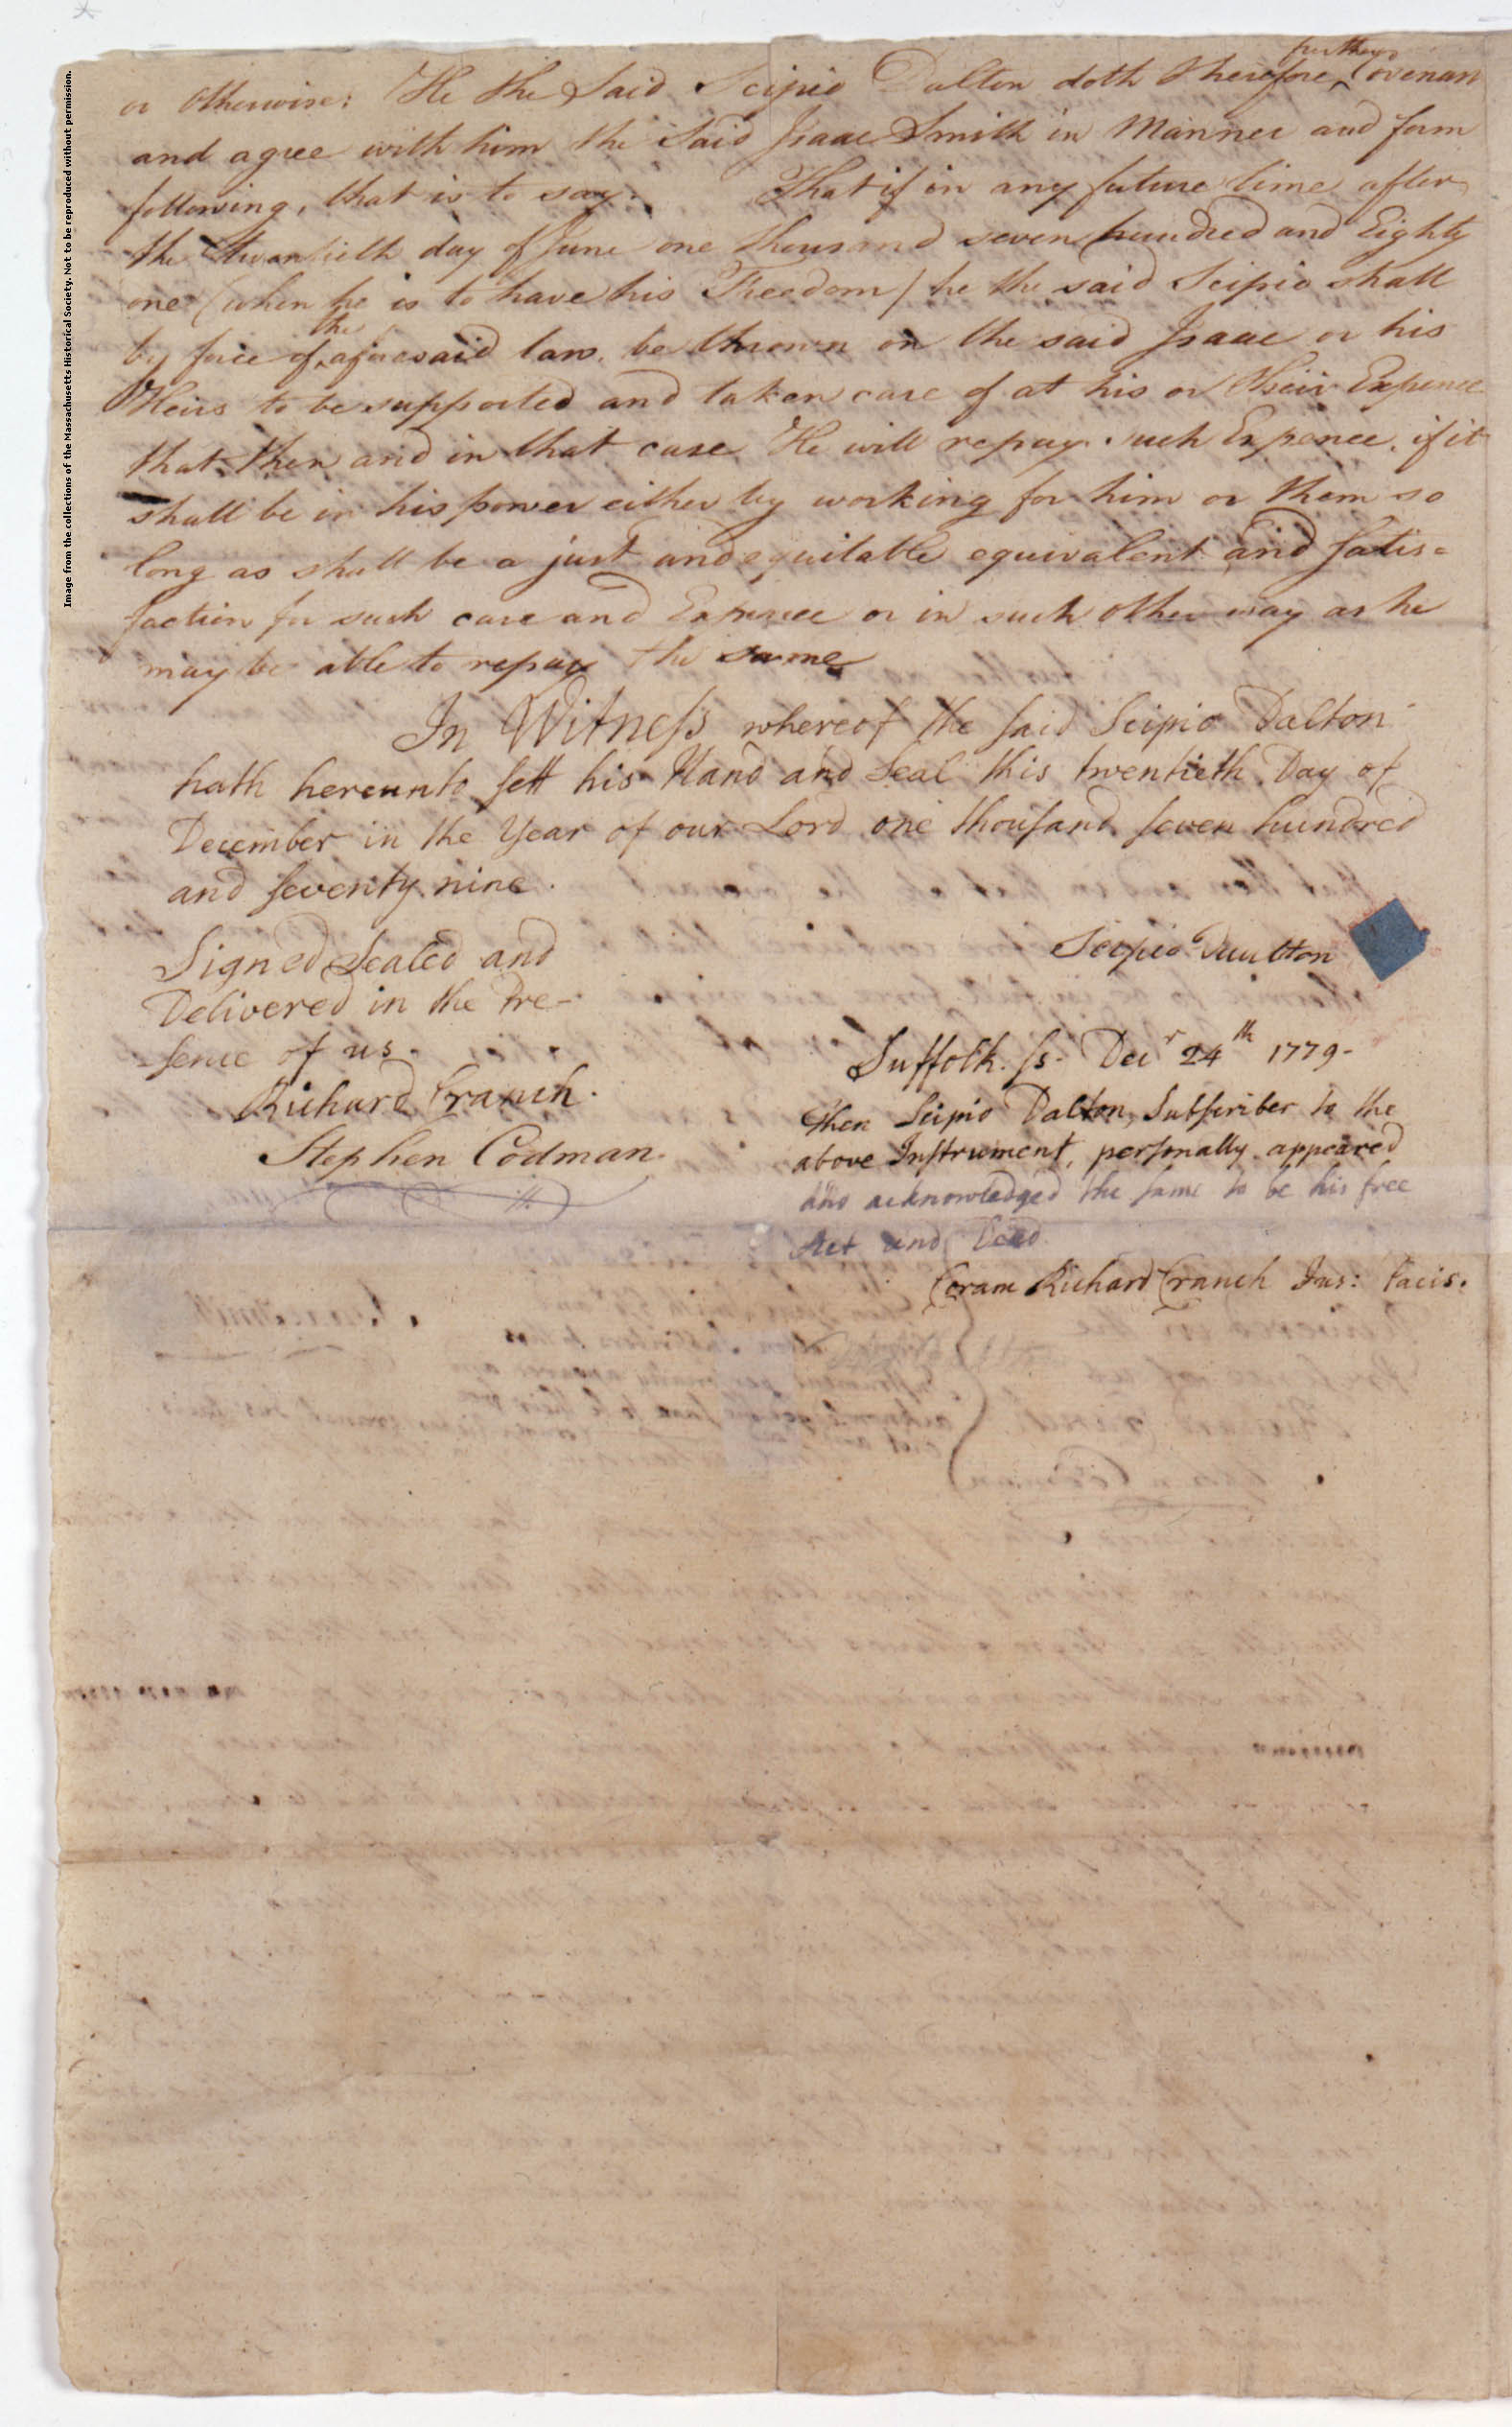 Image from the collections of the Massachusetts Historical Society. Not to be reproduced without permission.
further
or otherwise: He the Said Scipio Dalton doth therefore ^ Covenant
and agree with him the Said Isaac Smith in Manner and form
following, that is to say. That if in any future time after
the twentieth day of June one thousand seven hundred and Eighty
one (when he is to have his Freedom) he the said Scipio shall
the
by force of ^ aforesaid law, be thrown on the said Isaac or his
Heirs to be supported and taken care of at his or their Expence
that then and in that case He will repay such Expence, if it
shall be in his power either by working for him or them so
long as shall be a just and equitable equivalent and satis=
faction for such care and Expence or in such other way as he
may be able to repay the same
In Witness whereof the said Scipio Dalton
hath hereunto sett his Hand and Seal this twentieth Day of
December in the Year of our Lord one thousand seven hundred
and seventy nine.
Signed Sealed and
Delivered in the Pre-
sence of us.
Richard Cranch.
Stephen Codman.
Scipio Daulton
Suffolk. ss- Decr 24th 1779-
Then Scipio Dalton, Subscriber to the
above Instrument, personally appeared
and acknowledged the same to be his free
Act and Deed.
Coram Richard Cranch Jus: Pacis.